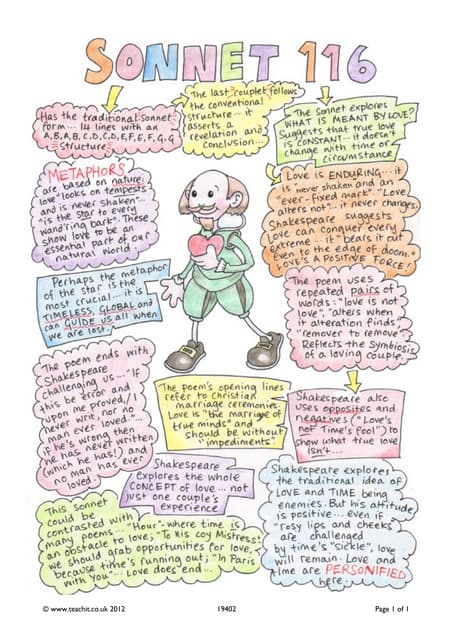 SONNET 116
Has the traditional sonnet
form... 14 lines with an
A,B,A,B,C,D,C,D,E,F,E,F,G,G
structure
The last couplet follows
the conventional
structure... it
asserts a
revelation and
conclusion...
The sonnet explores
WHAT IS MEANT BY LOVE?
Suggests that true love
is CONSTANT... it doesn't
change with time or
circumstance
METAPHORS
are based on nature:
love "looks on tempests
and is never shaken"
"is the star to every
wand'ring bark". These
show love to be an
essential part of our
natural world.
Love is ENDURING... it
is never shaken and an
"ever-fixed mark". "Love
alters not"... it never changes.
Shakespeare suggests
Love can conquer every
extreme... it "bears it out
even to the edge of doom."
LOVE'S A POSITIVE FORCE!
Perhaps the metaphor
of the star is the
most crucial... it is
TIMELESS, GLOBAL and
can GUIDE us all when
we are lost.
The poem uses
repeated pairs of
words: "love is not
love", "alters when
it alteration finds",
"remover to remove".
Reflects the symbiosis
of a loving couple.
The poem ends with
Shakespeare
challenging us... "If
this be error and
upon me proved,/I
never writ, nor no
man ever loved"...
if he's wrong then
he has never written
(which he has!) and
no man has ever
loved.
The poem's opening lines
refer to Christian
marriage ceremonies.
Love is "the marriage of
true minds" and
should be without
"impediments"
Shakespeare also
uses opposites and
negatives ("Love's
not Time's fool") to
show what true love
isn't...
Shakespeare
explores the whole
CONCEPT of love... not
just one couple's
experience
This sonnet
could be
contrasted with
many poems... "Hour"-where time is
an obstacle to love; "To His Coy Mistress"
we should grab opportunities for love,
because time's running out; "In Paris
with You"... Love does end...
Shakespeare explores
the traditional idea of
LOVE and TIME being
enemies. But his attitude
is positive... even if
"rosy lips and cheeks"
are challenged
by time's "sickle", love
will remain. Love and
time are PERSONIFIED
here.
© www.teachit.co.uk 2012 19402 Page 1 of 1